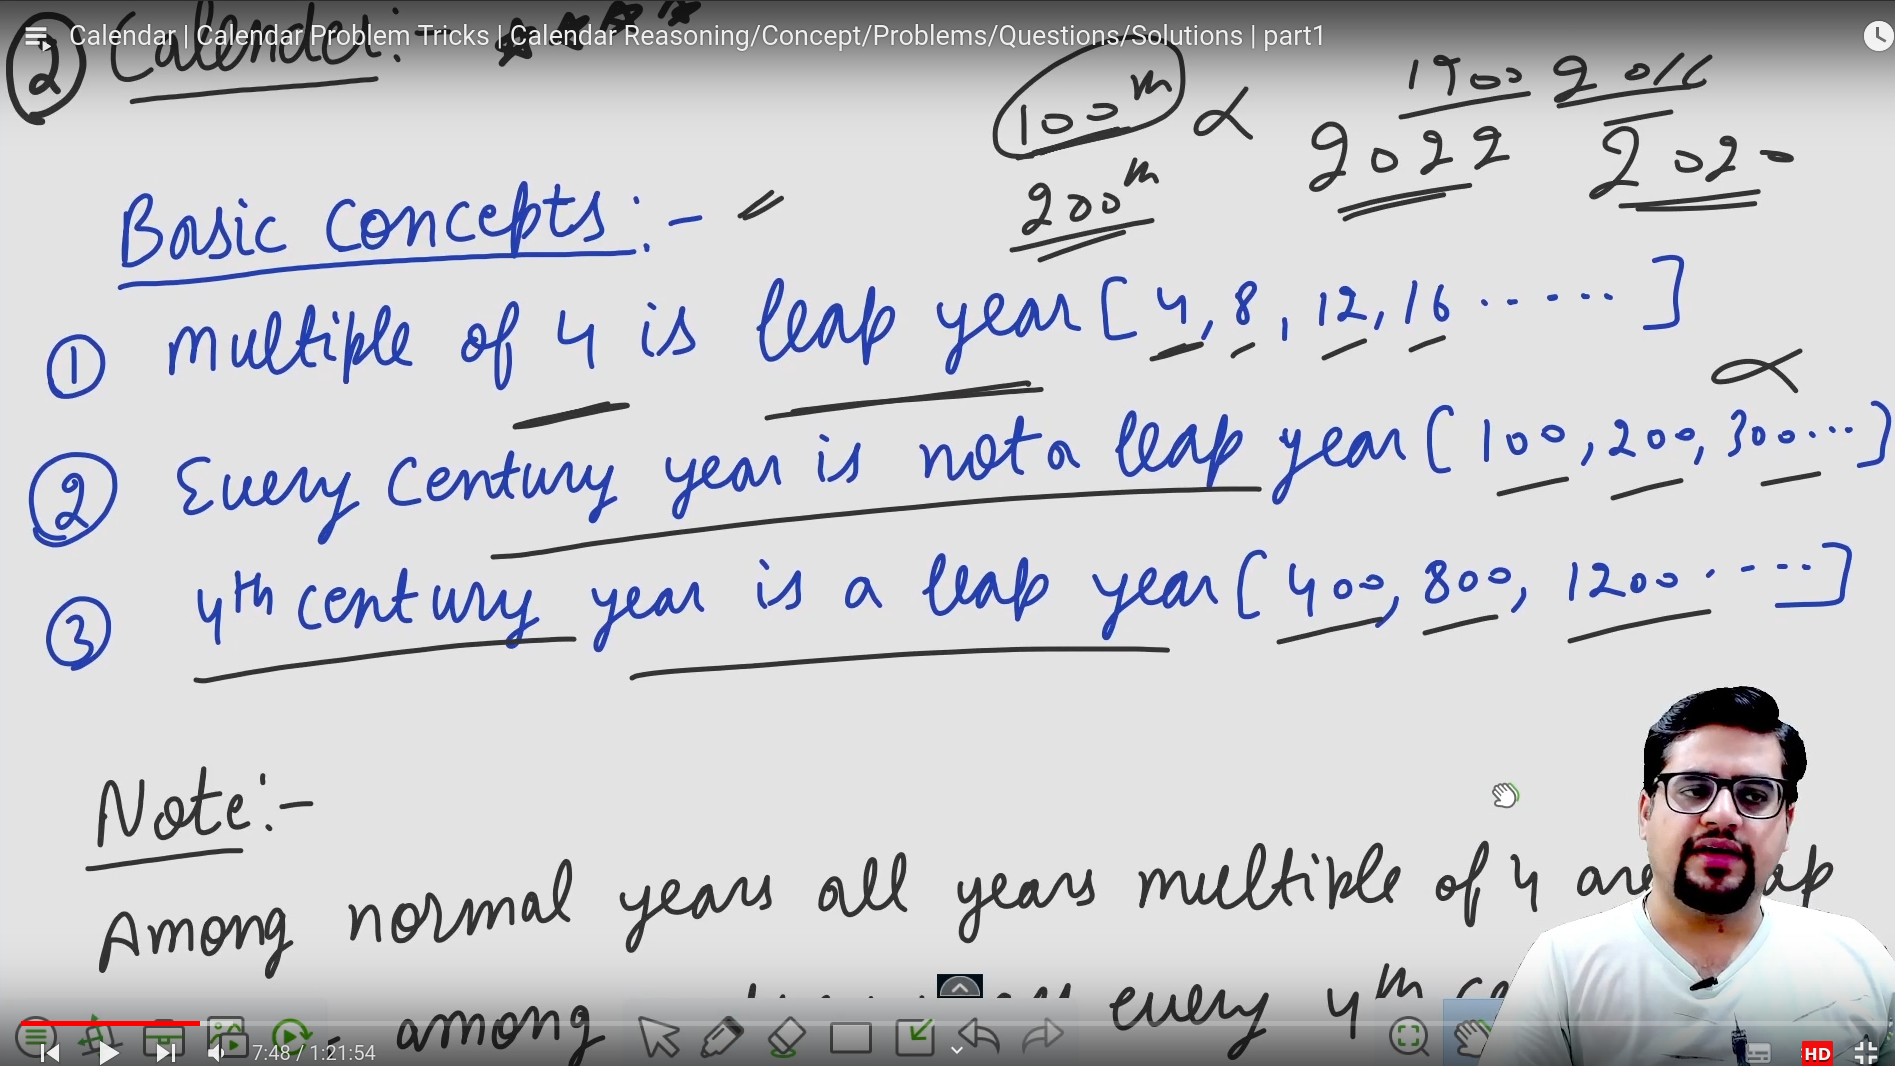 Calendar | Calendar Problem Tricks | Calendar Reasoning/Concept/Problems/Questions/Solutions | part1
② Calender:-
100th
200th
1900 2016
2022 2020
Basic concepts:-
① multiple of 4 is leap year [4, 8, 12, 16 ......]
② Every century year is not a leap year [100, 200, 300...]
③ 4th century year is a leap year [400, 800, 1200 .....]
Note:-
Among normal years all years multiple of 4 are
among every 4th
7:48 / 1:21:54
HD